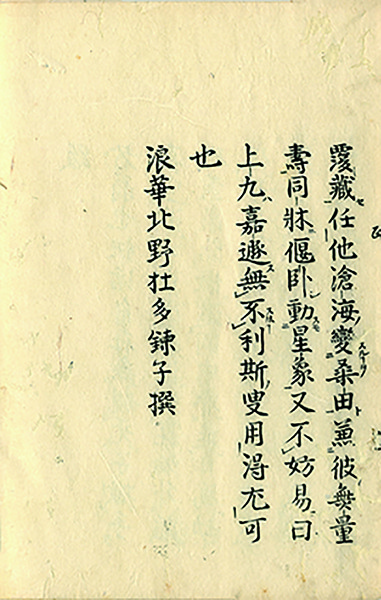 覆藏任他滄海變桑田兼彼無量
壽同牀偃卧動星象又不妨易曰
上九嘉遯無不利斯叟用得尤可
也
浪華北野杜多錬子撰